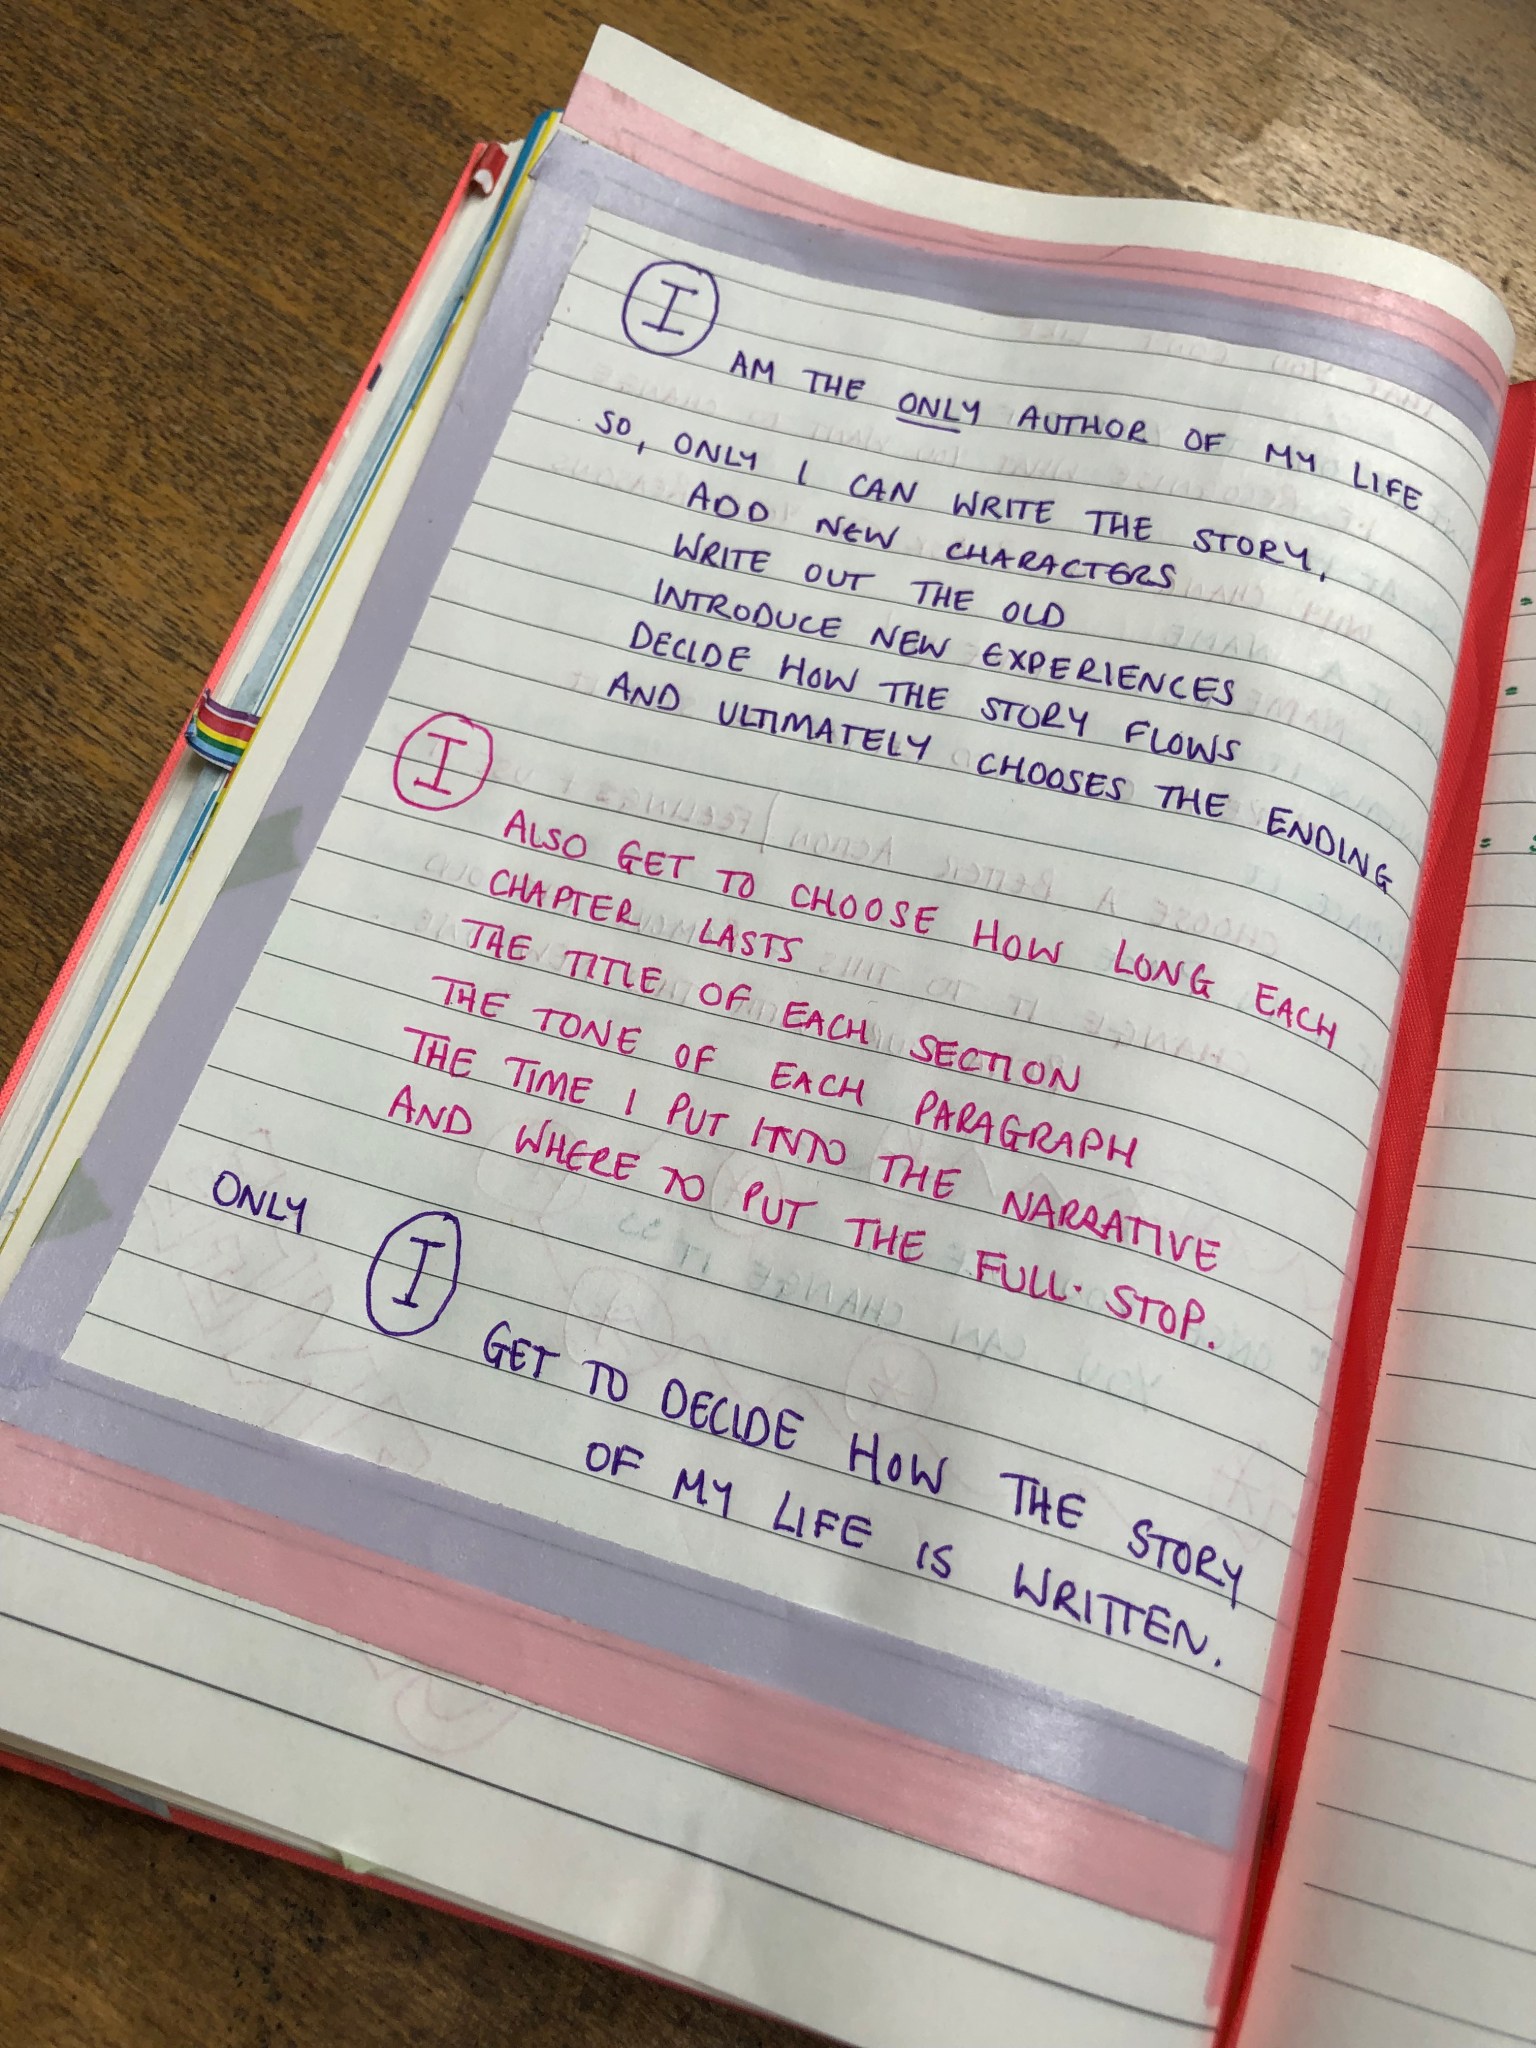 I
AM THE ONLY AUTHOR OF MY LIFE
SO, ONLY I CAN WRITE THE STORY,
ADD NEW CHARACTERS
WRITE OUT THE OLD
INTRODUCE NEW EXPERIENCES
DECIDE HOW THE STORY FLOWS
AND ULTIMATELY CHOOSES THE ENDING
I
ALSO GET TO CHOOSE HOW LONG EACH
CHAPTER LASTS
THE TITLE OF EACH SECTION
THE TONE OF EACH PARAGRAPH
THE TIME I PUT INTO THE NARRATIVE
AND WHERE TO PUT THE FULL. STOP.
ONLY I
GET TO DECIDE HOW THE STORY
OF MY LIFE IS WRITTEN.